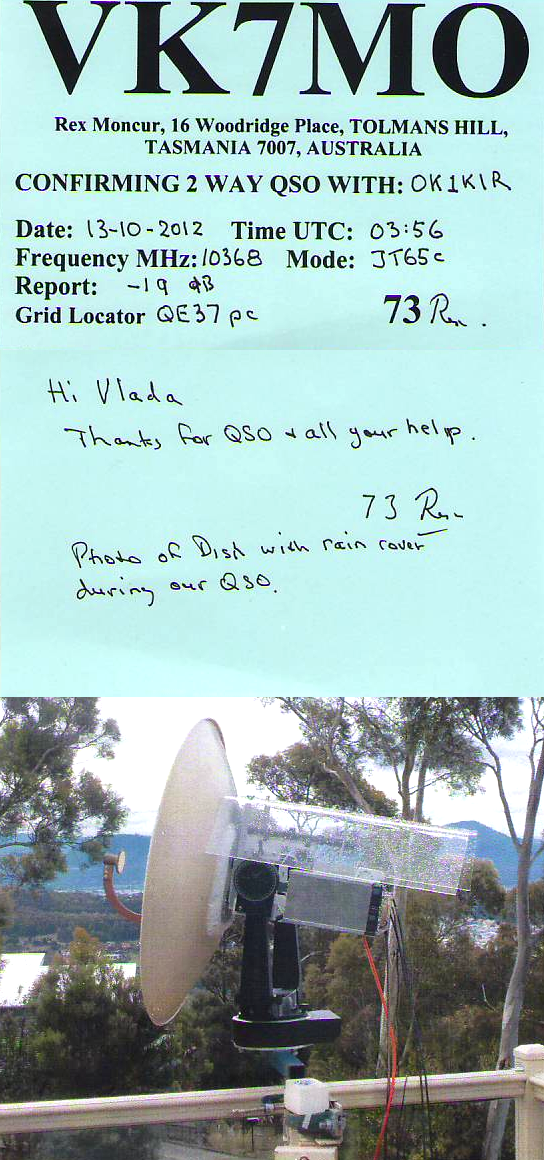 VK7MO
Rex Moncur, 16 Woodridge Place, TOLMANS HILL,
TASMANIA 7007, AUSTRALIA
CONFIRMING 2 WAY QSO WITH: OK1KIR
Date: 13-10-2012 Time UTC: 03:56
Frequency MHz: 10368 Mode: JT65c
Report: -19 dB
Grid Locator QE37pc 73 Rex.
Hi Vlada
Thanks for QSO + all your help.
73 Rex
Photo of Dish with rain cover
during our QSO.